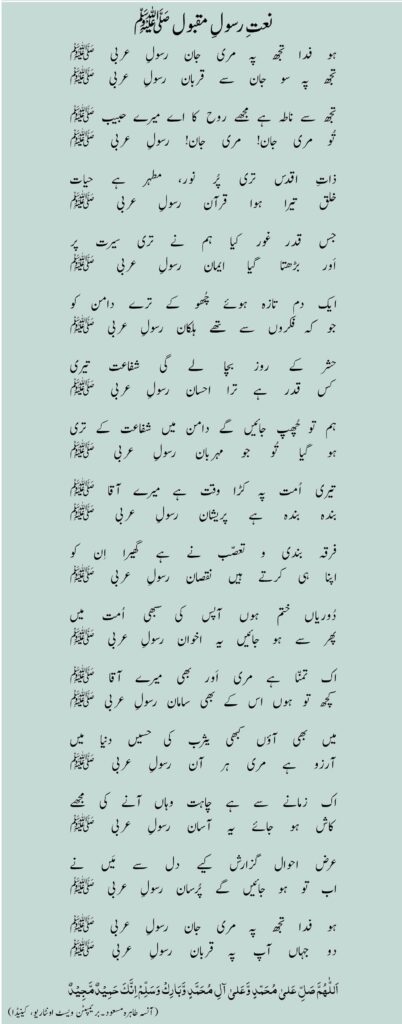 نعتِ رسولِ مقبول ﷺ
ہو فدا تجھ پہ مری جان رسولِ عربی ﷺ
تجھ پہ سو جان سے قربان رسولِ عربی ﷺ
تجھ سے ناطہ ہے مجھے روح کا اے میرے حبیب ﷺ
تُو مری جان! مری جان! رسولِ عربی ﷺ
ذاتِ اقدس تری پُر نور، مطہر ہے حیات
خلق تیرا ہوا قرآن رسولِ عربی ﷺ
جس قدر غور کیا ہم نے تری سیرت پر
اَور بڑھتا گیا ایمان رسولِ عربی ﷺ
ایک دم تازہ ہوئے چُھو کے ترے دامن کو
جو کہ فکروں سے تھے ہلکان رسولِ عربی ﷺ
حشر کے روز بچا لے گی شفاعت تیری
کس قدر ہے ترا احسان رسولِ عربی ﷺ
ہم تو چُھپ جائیں گے دامن میں شفاعت کے تری
ہو گیا تُو جو مہربان رسولِ عربی ﷺ
تیری اُمت پہ کڑا وقت ہے میرے آقا ﷺ
بندہ بندہ ہے پریشان رسولِ عربی ﷺ
فرقہ بندی و تعصّب نے ہے گھیرا اِن کو
اپنا ہی کرتے ہیں نقصان رسولِ عربی ﷺ
دُوریاں ختم ہوں آپس کی سبھی اُمت میں
پھر سے ہو جائیں یہ اخوان رسولِ عربی ﷺ
اک تمنّا ہے مری اَور بھی میرے آقا ﷺ
کچھ تو ہوں اس کے بھی سامان رسولِ عربی ﷺ
میں بھی آؤں کبھی یثرب کی حسیں دنیا میں
آرزو ہے مری ہر آن رسولِ عربی ﷺ
اک زمانے سے ہے چاہت وہاں آنے کی مجھے
کاش ہو جائے یہ آسان رسولِ عربی ﷺ
عرض احوال گزارش کیے دل سے مَیں نے
اب تو ہو جائیں گے پُرسان رسولِ عربی ﷺ
ہو فدا تجھ پہ مری جان رسولِ عربی ﷺ
دو جہاں آپ پہ قربان رسولِ عربی ﷺ
اَللّٰهُمَّ صَلِّ عَلىٰ مُحَمَّدٍ وَّعَلىٰ آلِ مُحَمَّدٍ وَّبَارِكْ وَسَلِّمْ اِنَّكَ حَمِيْدٌ مَّجِيْدٌ
(آنسہ طاہرہ مسعود۔ بریمپٹن ویسٹ اونٹاریو، کینیڈا)